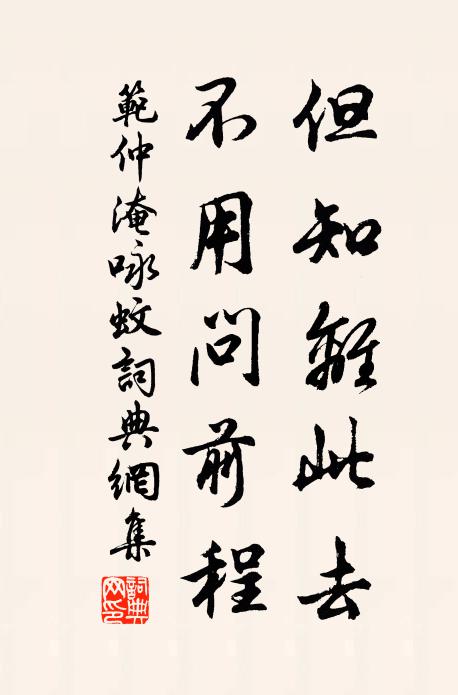 但知離此去
不用問前程
範仲淹咏蚊詞典網集
詞典
网印